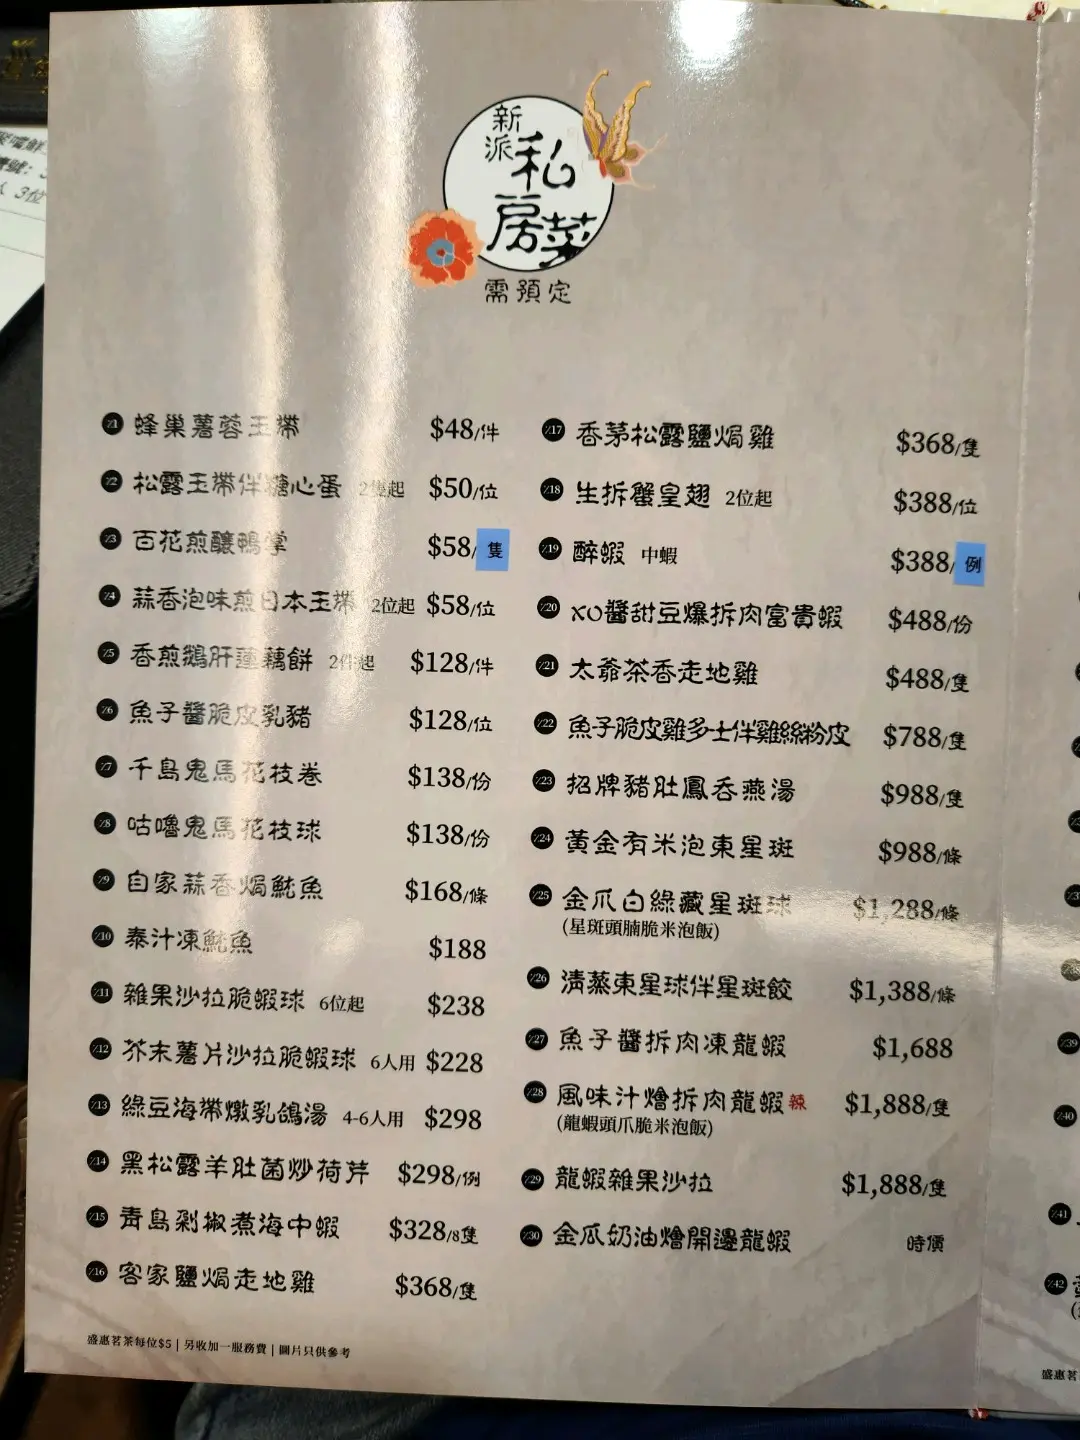 新派
私房菜
需預定
Z1 蜂巢薯蓉玉帶 $48/件
Z2 松露玉帶伴糖心蛋 2隻起 $50/位
Z3 百花煎釀鴨掌 $58/隻
Z4 蒜香泡味煎日本玉帶 2位起 $58/位
Z5 香煎鵝肝蓮藕餅 2件起 $128/件
Z6 魚子醬脆皮乳豬 $128/位
Z7 千島鬼馬花枝卷 $138/份
Z8 咕嚕鬼馬花枝球 $138/份
Z9 自家蒜香焗魷魚 $168/條
Z10 泰汁凍魷魚 $188
Z11 雜果沙拉脆蝦球 6位起 $238
Z12 芥末薯片沙拉脆蝦球 6人用 $228
Z13 綠豆海帶燉乳鴿湯 4-6人用 $298
Z14 黑松露羊肚菌炒荷芹 $298/例
Z15 青島剁椒煮海中蝦 $328/8隻
Z16 客家鹽焗走地雞 $368/隻
Z17 香茅松露鹽焗雞 $368/隻
Z18 生拆蟹皇翅 2位起 $388/位
Z19 醉蝦 中蝦 $388/例
Z20 XO醬甜豆爆拆肉富貴蝦 $488/份
Z21 太爺茶香走地雞 $488/隻
Z22 魚子脆皮雞多士伴雞絲粉皮 $788/隻
Z23 招牌豬肚鳳吞燕湯 $988/隻
Z24 黃金有米泡東星斑 $988/條
Z25 金瓜白綠藏星斑球 $1,288/條
(星斑頭腩脆米泡飯)
Z26 清蒸東星球伴星斑餃 $1,388/條
Z27 魚子醬拆肉凍龍蝦 $1,688
Z28 風味汁燴拆肉龍蝦 辣 $1,888/隻
(龍蝦頭爪脆米泡飯)
Z29 龍蝦雜果沙拉 $1,888/隻
Z30 金瓜奶油燴開邊龍蝦 時價
盛惠茗茶每位$5 | 另收加一服務費 | 圖片只供參考
Z39
Z40
Z41
Z42
盛惠茗
3位